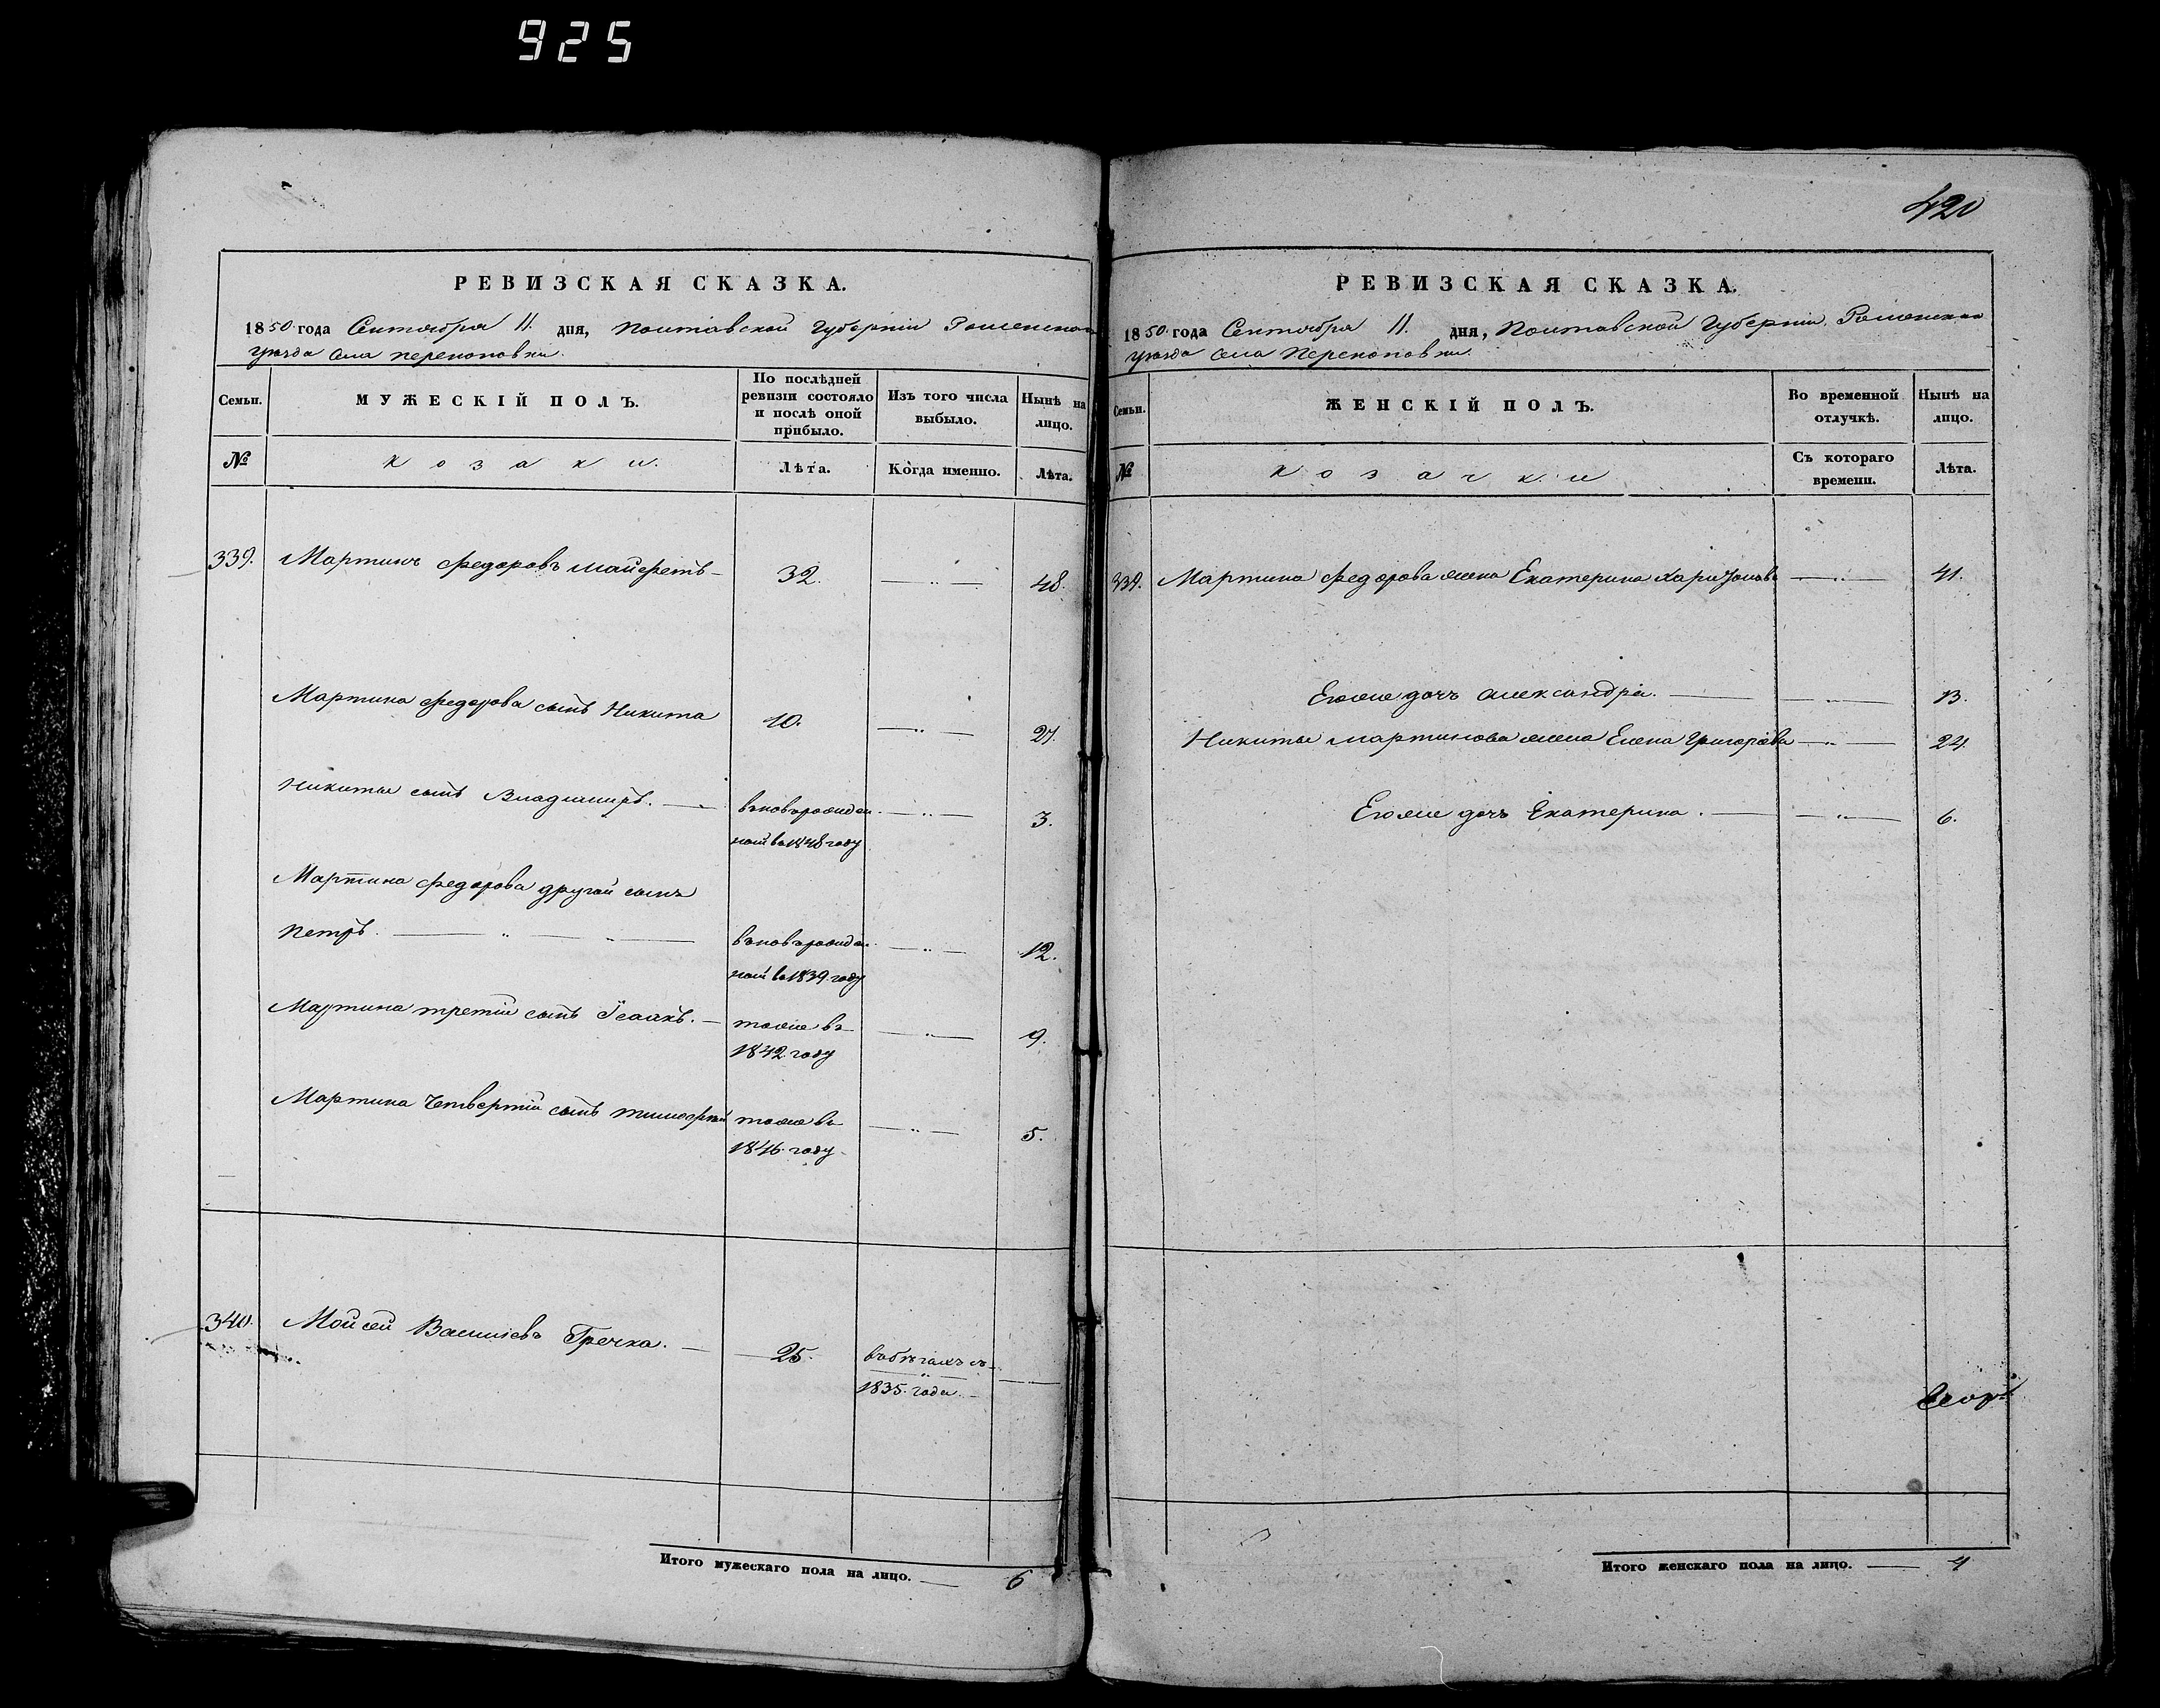 925
РЕВИЗСКАЯ СКАЗКА.
1850 года Сентября 11. дня, Полтавской Губерніи Роменскаго
уѣзда села Перекоповки.
Семьи.
МУЖЕСКІЙ ПОЛЪ.
По послѣдней ревизіи состояло и послѣ оной прибыло.
Изъ того числа выбыло.
Нынѣ на лицо.
№
козаки.
Лѣта.
Когда именно.
Лѣта.
339. Мартинъ Федоровъ 32. 48.
Мартина Федорова сынъ Никита 10. 27.
Никиты сынъ Владимиръ. вновьрожденной въ 1848 году 3.
Мартина Федорова другой сынъ
Петръ. вновьрожденной въ 1839. году 12.
Мартина третій сынъ Ісаакъ. тоже въ 1842. году 9.
Мартина Четвертій сынъ Тимофѣй тоже въ 1846. году 5.
340. Мойсей Василіевъ Гречка. 25. въ бѣгахъ съ 1835. года
Итого мужескаго пола на лицо. 6
420
РЕВИЗСКАЯ СКАЗКА.
1850 года Сентября 11. дня, Полтавской Губерніи. Роменскаго
уѣзда села Перекоповки.
Семьи.
ЖЕНСКІЙ ПОЛЪ.
Во временной отлучкѣ.
Нынѣ на лицо.
№
козачки
Съ котораго времени.
Лѣта.
339. Мартина Федорова жена Екатерина Харитонова 41.
Егоже дочь Александра. 13.
Никиты Мартинова жена Елена Григорїева 24.
Егоже дочь Екатерина. 6.
Итого женскаго пола на лицо. 4